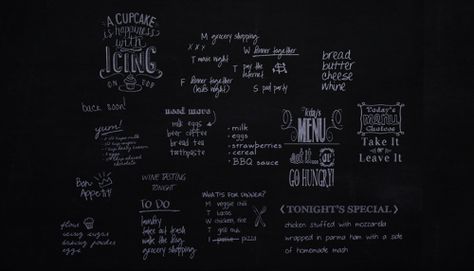 A CUPCAKE
is happiness
with
ICING
ON TOP
M grocery shopping
x x x
W dinner together
T movie night
T pay the
internet
F dinner together
(kids night)
S pool party
bread
butter
cheese
wine
back soon!
need more
milk eggs
beer coffee
bread tea
toothpaste
• milk
• eggs
• strawberries
• cereal
• BBQ sauce
Today's
MENU
eat it...
or
GO HUNGRY!
Today's
menu
Choices
Take It
or
Leave It
yum!
Bon
Appetit!
WINE TASTING
TONIGHT
TO DO
laundry
take out trash
walk the dog
grocery shopping
WHAT'S FOR DINNER?
M veggie chili
T tacos
W chicken, rice
T grill out
F pasta pizza
flour
icing sugar
baking powder
eggs
TONIGHT'S SPECIAL
chicken stuffed with mozzarella
wrapped in parma ham with a side
of homemade mash